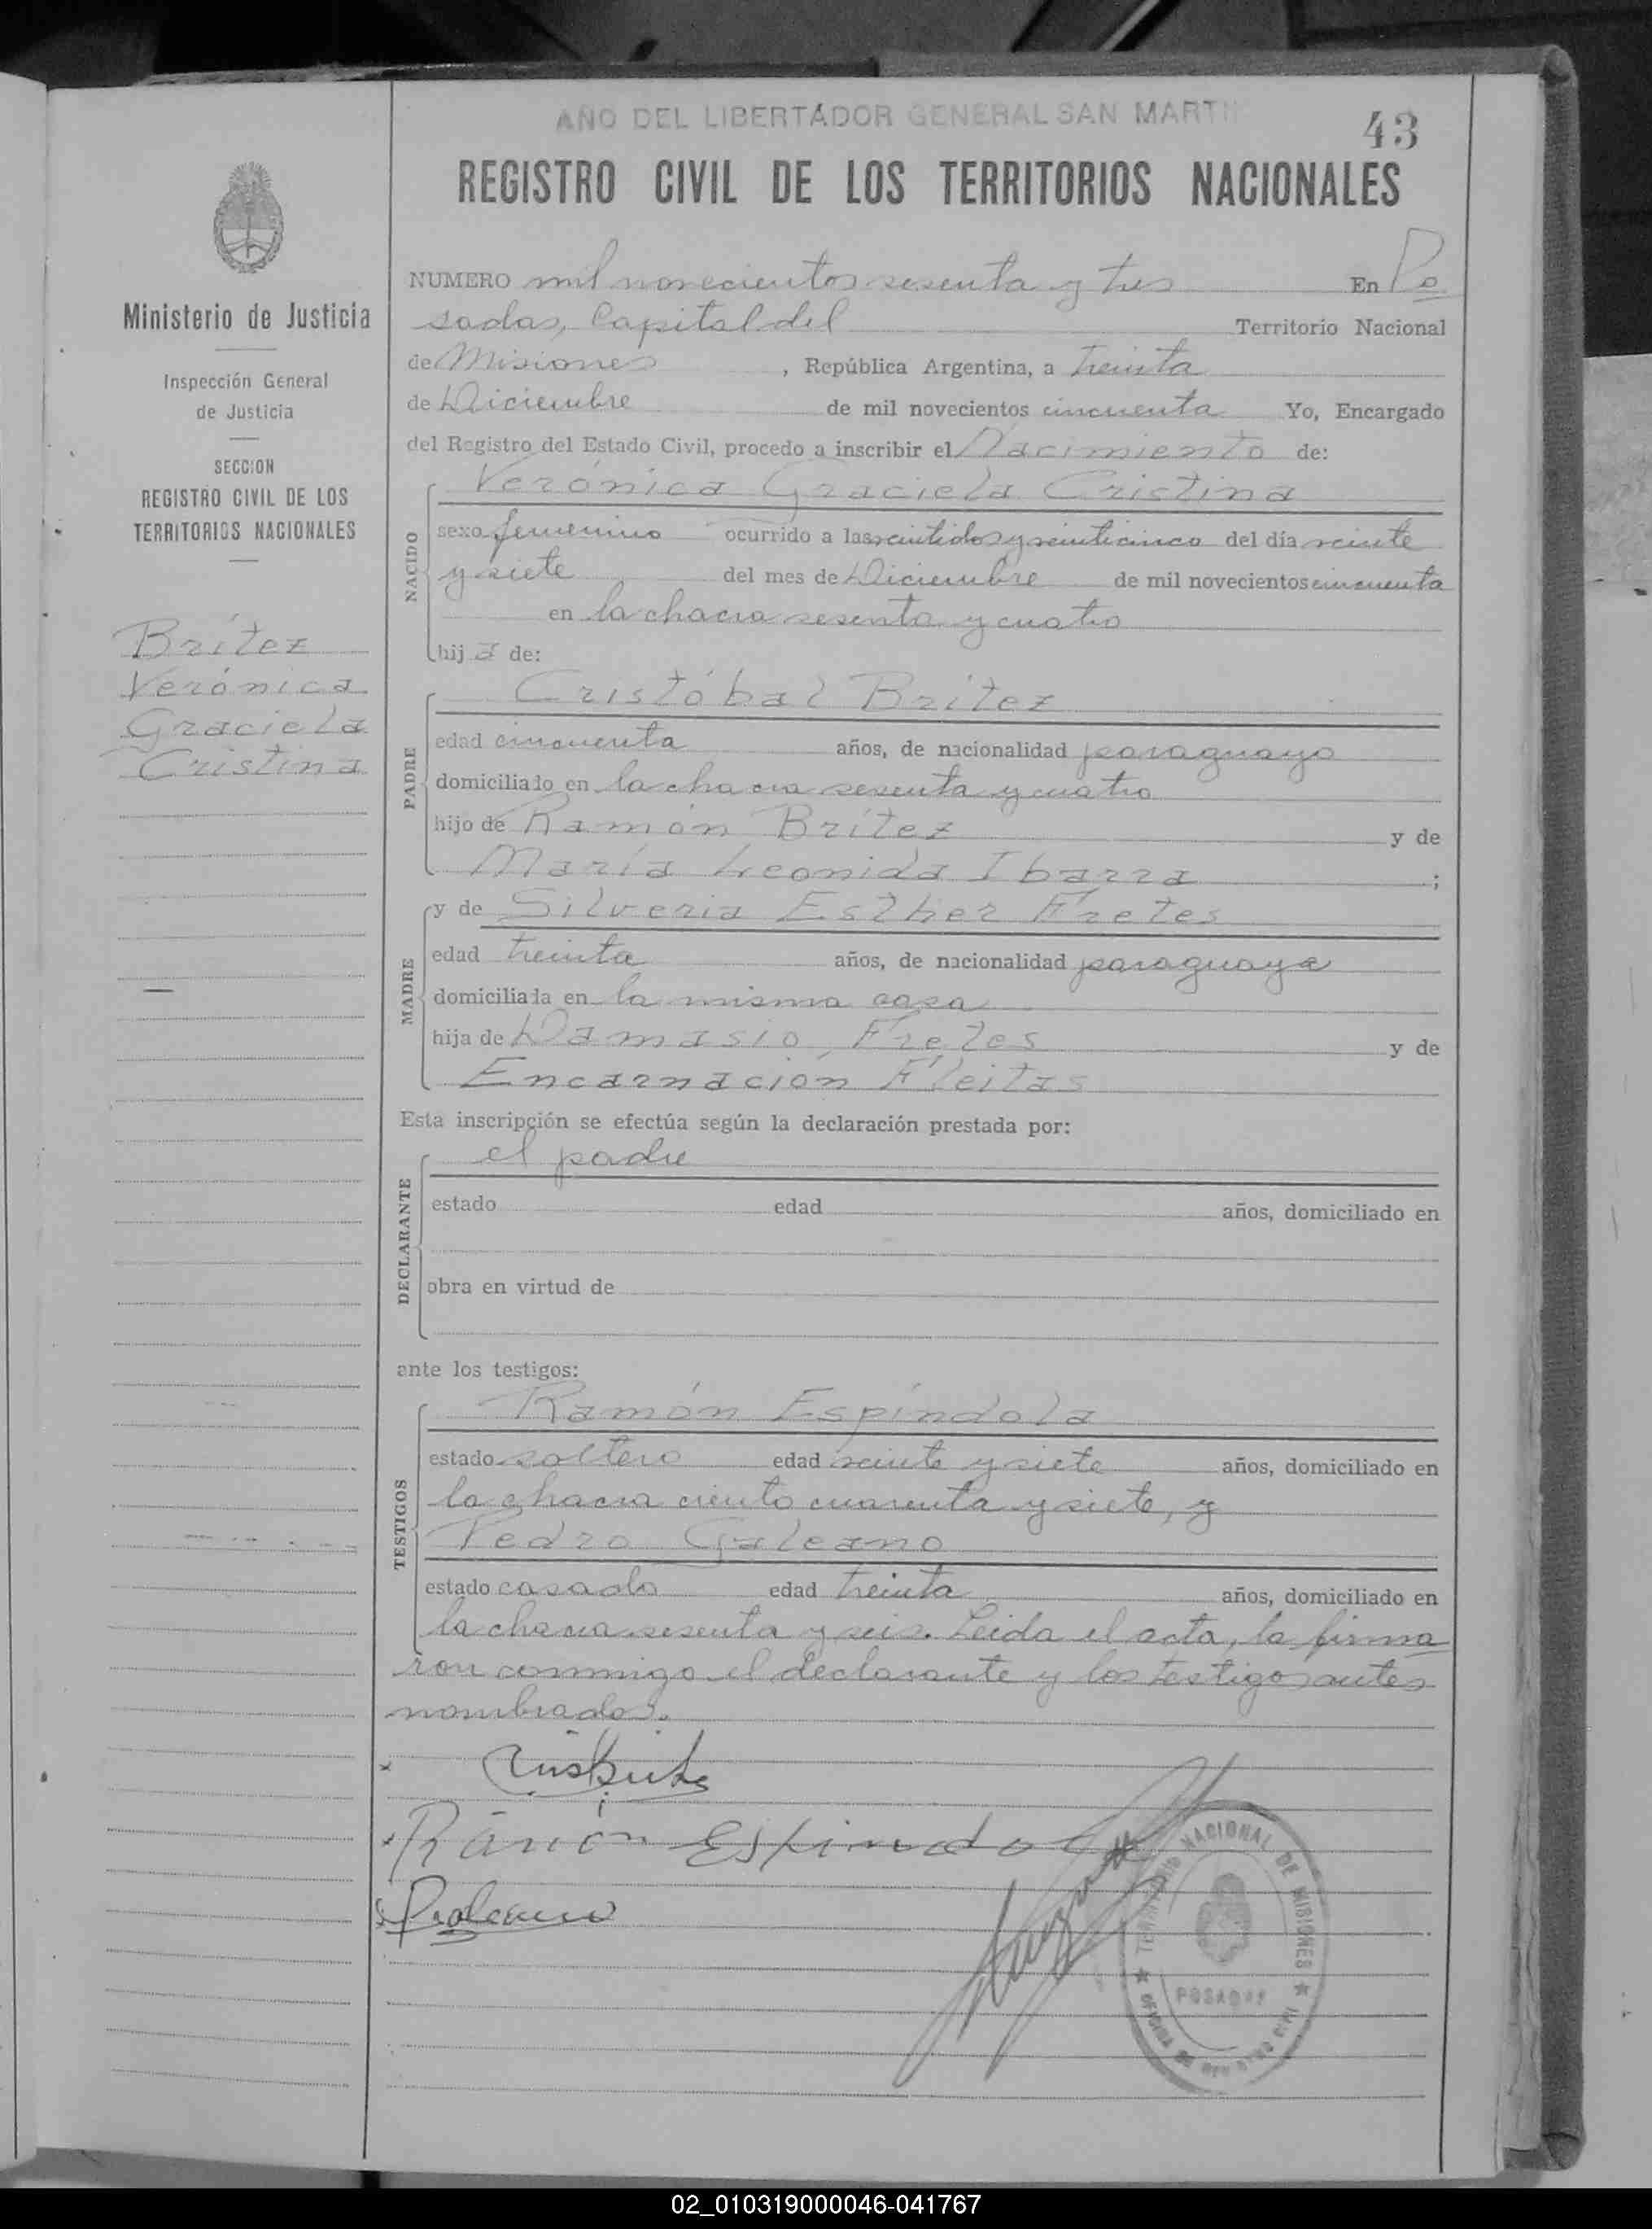 AÑO DEL LIBERTADOR GENERAL SAN MARTIN
43
REGISTRO CIVIL DE LOS TERRITORIOS NACIONALES
Ministerio de Justicia
Inspección General
de Justicia
SECCION
REGISTRO CIVIL DE LOS
TERRITORIOS NACIONALES
Brítez
Verónica
Graciela
Cristina
NUMERO mil novecientos sesenta y tres En Po
sadas, Capital del Territorio Nacional
de Misiones, República Argentina, a treinta
de Diciembre de mil novecientos cincuenta Yo, Encargado
del Registro del Estado Civil, procedo a inscribir el Nacimiento de:
NACIDO
Verónica Graciela Cristina
sexo femenino ocurrido a las veintidos y veinticinco del día veinte
y siete del mes de Diciembre de mil novecientos cincuenta
en la chacra sesenta y cuatro
hija de:
PADRE
Cristóbal Brítez
edad cincuenta años, de nacionalidad paraguayo
domiciliado en la chacra sesenta y cuatro
hijo de Ramón Brítez y de
María Leonida Ibarra;
MADRE
y de Silveria Esther Fretes
edad treinta años, de nacionalidad paraguaya
domiciliada en la misma casa
hija de Damasio Fretes y de
Encarnación Fleitas
Esta inscripción se efectúa según la declaración prestada por:
DECLARANTE
el padre
estado edad años, domiciliado en
obra en virtud de
ante los testigos:
TESTIGOS
Ramón Espíndola
estado soltero edad veinte y siete años, domiciliado en
la chacra ciento cuarenta y siete, y
Pedro Galeano
estado casado edad treinta años, domiciliado en
la chacra sesenta y seis. Leida el acta, la firma
ron conmigo el declarante y los testigos antes
nombrados.
Ramón Espindola
PGaleano
TERRITORIO NACIONAL DE MISIONES
POSADAS
OFICINA DE REGISTRO CIVIL
02_010319000046-041767